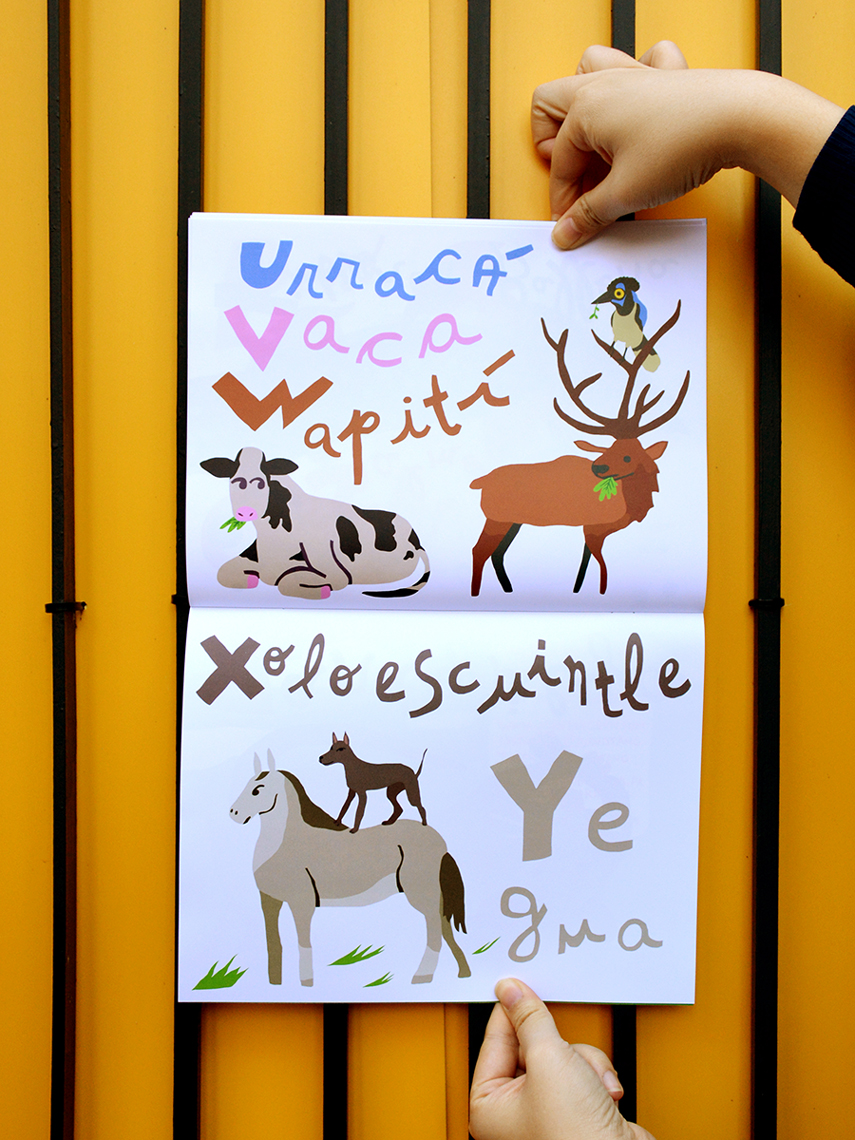 Urracá
Vaca
Wapití
Xoloescuintle
Ye
gua